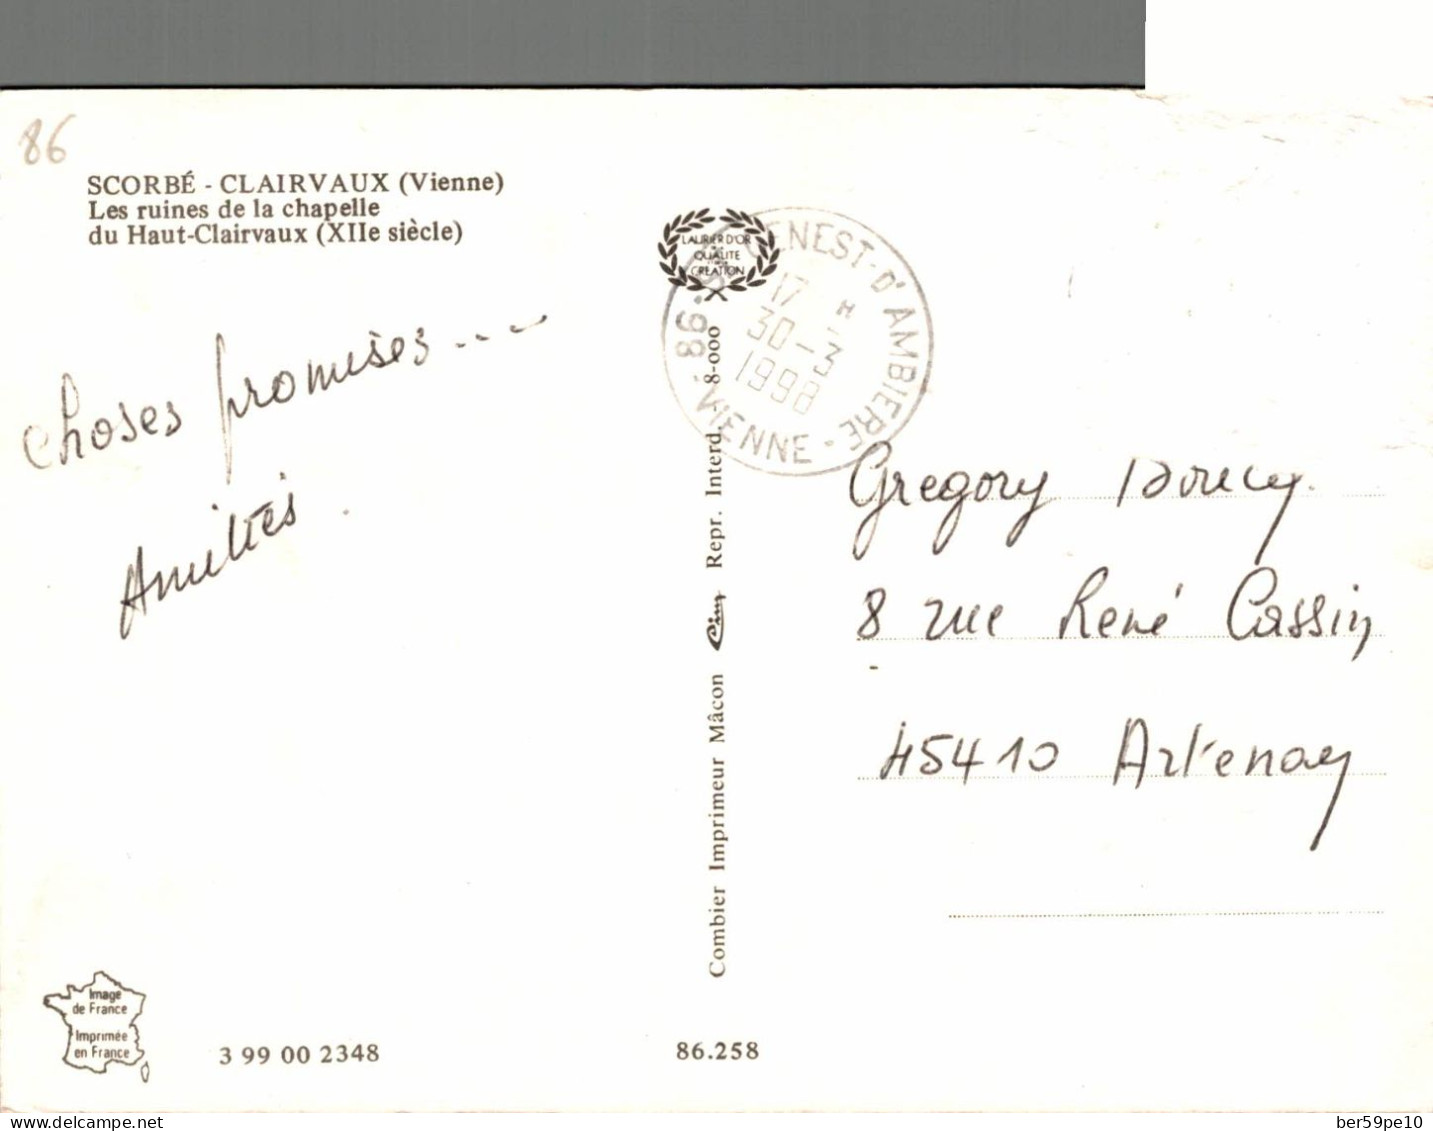 86
SCORBÉ - CLAIRVAUX (Vienne)
Les ruines de la chapelle
du Haut-Clairvaux (XIIe siècle)
choses promises....
Amitiés.
LAURIER D'OR
QUALITE
CREATION
86 - GENEST-D'AMBIERE - VIENNE
17 H
30-3
1998
Combier Imprimeur Mâcon Cim Repr. Interd. - 8-000
Gregory
8 rue René Cassin
45410 Artenay
Image
de France
Imprimée
en France
3 99 00 2348
86.258
delcampe.net
ber59pe10